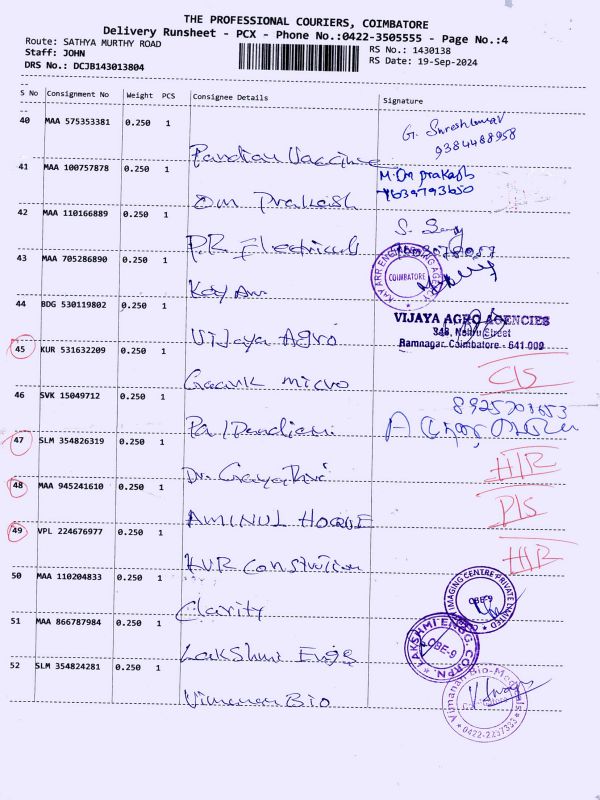 THE PROFESSIONAL COURIERS, COIMBATORE
Delivery Runsheet - PCX - Phone No.:0422-3505555 - Page No.:4
Route: SATHYA MURTHY ROAD
RS No.: 1430138
Staff: JOHN
RS Date: 19-Sep-2024
DRS No.: DCJB143013804
S No Consignment No Weight PCS Consignee Details Signature
40 MAA 575353381 0.250 1
G. Shreshkumar
9384488958
Pandian Vaccine
41 MAA 100757878 0.250 1
M.Om prakash
7639793650
Om Prakash
42 MAA 110166889 0.250 1
P.R Electricals
43 MAA 705286890 0.250 1
COIMBATORE
Kay Arr
44 BDG 530119802 0.250 1
VIJAYA AGRO AGENCIES
348, Nehru Street
Ramnagar, Coimbatore - 641 009
Vijaya Agro
45 KUR 531632209 0.250 1
C/S
micro
46 SVK 15049712 0.250 1
8925703653
47 SLM 354826319 0.250 1
Dr. Gayathri
48 MAA 945241610 0.250 1
P/S
AMINUL HOQUE
49 VPL 224676977 0.250 1
KVR Constrution
50 MAA 110204833 0.250 1
IMAGING CENTRE PRIVATE LIMITED
CBE-9
Clarity
51 MAA 866787984 0.250 1
LAKSHMI ENGG. CORPN.
CBE-9
Lakshmi Engg
52 SLM 354824281 0.250 1
Vimanan Bio-Medicals
0422-2237333
Vimanan Bio